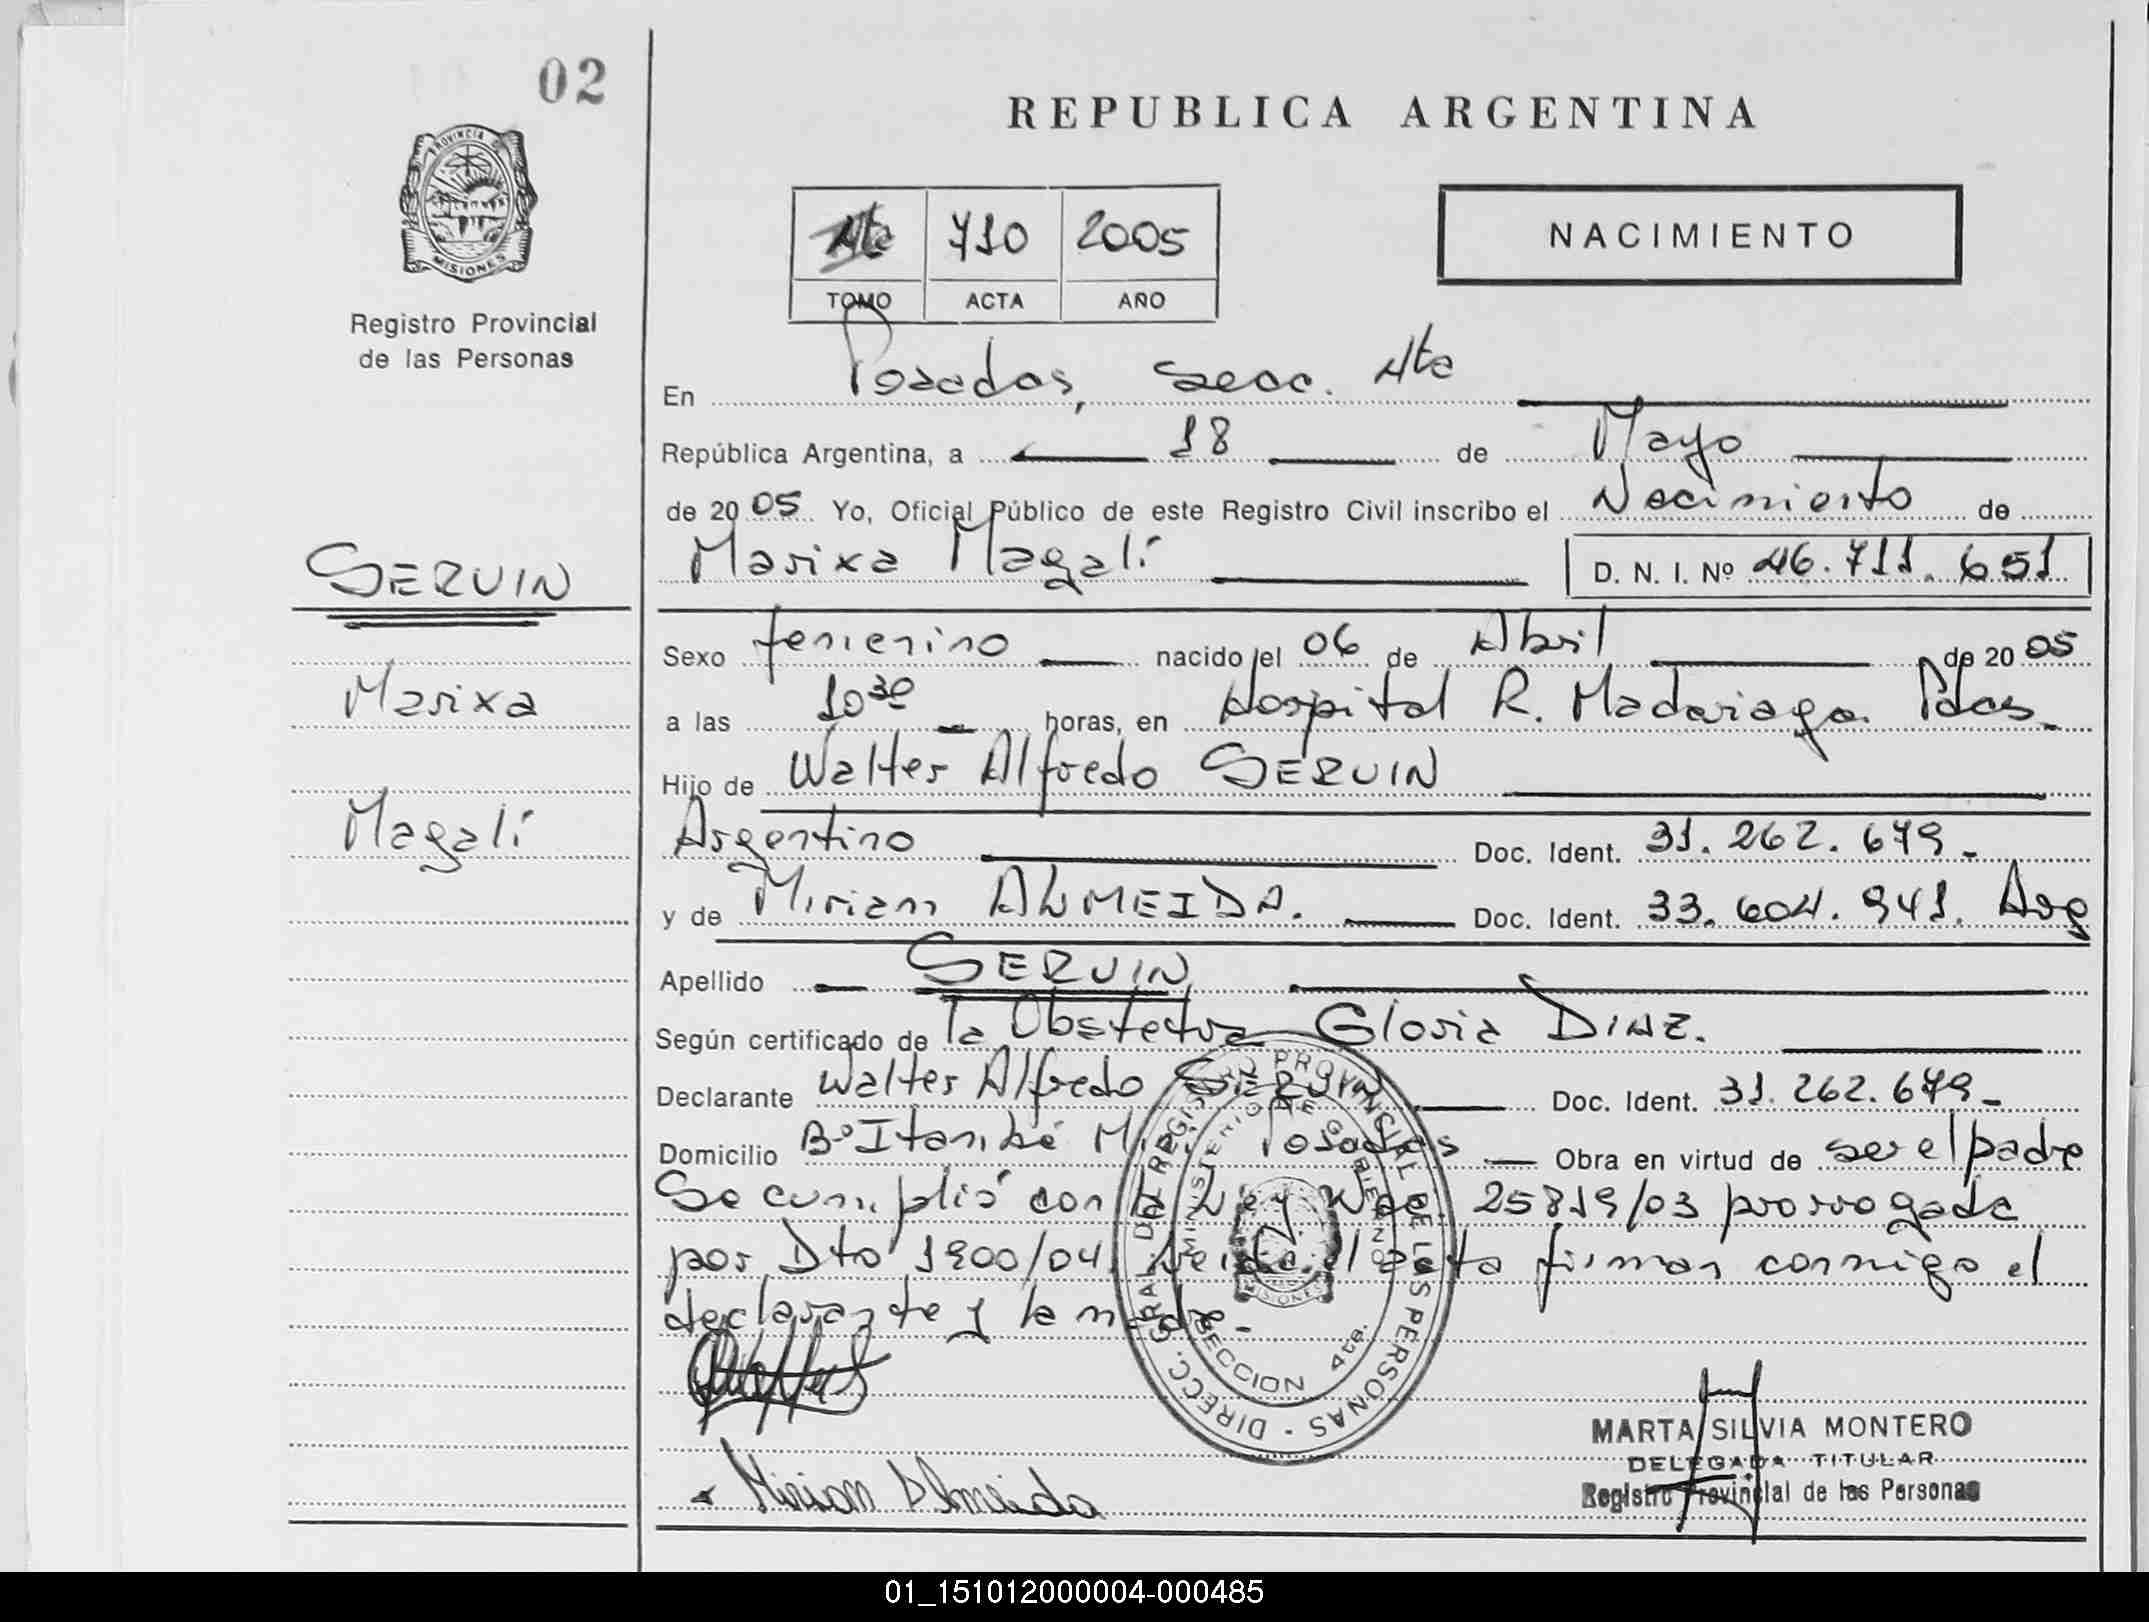 02
PROVINCIA
MISIONES
Registro Provincial
de las Personas
SERVIN
Marixa
Magalí
REPUBLICA ARGENTINA
4ta 710 2005
TOMO ACTA AÑO
NACIMIENTO
En Posadas, Secc. 4ta
República Argentina, a 18 de Mayo
de 2005 Yo, Oficial Público de este Registro Civil inscribo el Nacimiento de
Marixa Magalí D. N. I. Nº 46.711.651
Sexo femenino nacido el 06 de Abril de 2005
a las 10 30 horas, en Hospital R. Madariaga Pdas.
Hijo de Walter Alfredo SERVIN
Argentino Doc. Ident. 31.262.679.-
y de Miriam ALMEIDA. Doc. Ident. 33.604.941. Arg
Apellido SERVIN
Según certificado de la Obstetra Gloria DIAZ.
Declarante Walter Alfredo SERVIN Doc. Ident. 31.262.679-
Domicilio Bº Itambé Miní Posadas Obra en virtud de ser el padre
Se cumplió con la Ley Nac. 25819/03 prorrogada
por Dto 1900/04. Leida el acta firman conmigo el
declarante y la madre-
DIRECC. GRAL. DEL REGISTRO PROVINCIAL DE LAS PERSONAS
MINISTERIO DE GOBIERNO
MISIONES
SECCION 4ta.
Miriam Almeida
MARTA SILVIA MONTERO
DELEGADA TITULAR
Registro Provincial de las Personas
01_151012000004-000485